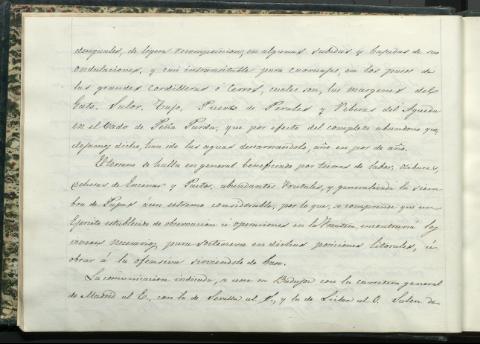 desiguales, de ligera recomposicion, en algunas subidas y bajadas de sus
ondulaciones, y casi intransitable para carruajes, en los pasos de
las grandes cordilleras ó Cerros, cuales son, las margenes del
Salor, Tajo, Puerto de Perales y Riberas del Agueda
en el Vado de Peña Parda, que por efecto del completo abandono que
dejamos dicho, han ido las aguas desarmandolo, año en pos de año.
El terreno se halla en general beneficiado por tierras de labor,
dehesas de Encinar y Pasto, abundantes frutales, y generalizada la siem-
bra de Papas á un estremo considerable, por lo que, se comprende que un
Ejercito establecido de observacion ú operaciones en la Frontera, encontrará los
recursos necesarios, para sostenerse en dichas posiciones litorales, ú
obrar á la ofensiva sirviendole de base.
La comunicacion indicada, se une en Badajoz con la carretera general
de Madrid al E., con la de Sevilla al S., y la de Lisboa al O. Salen de